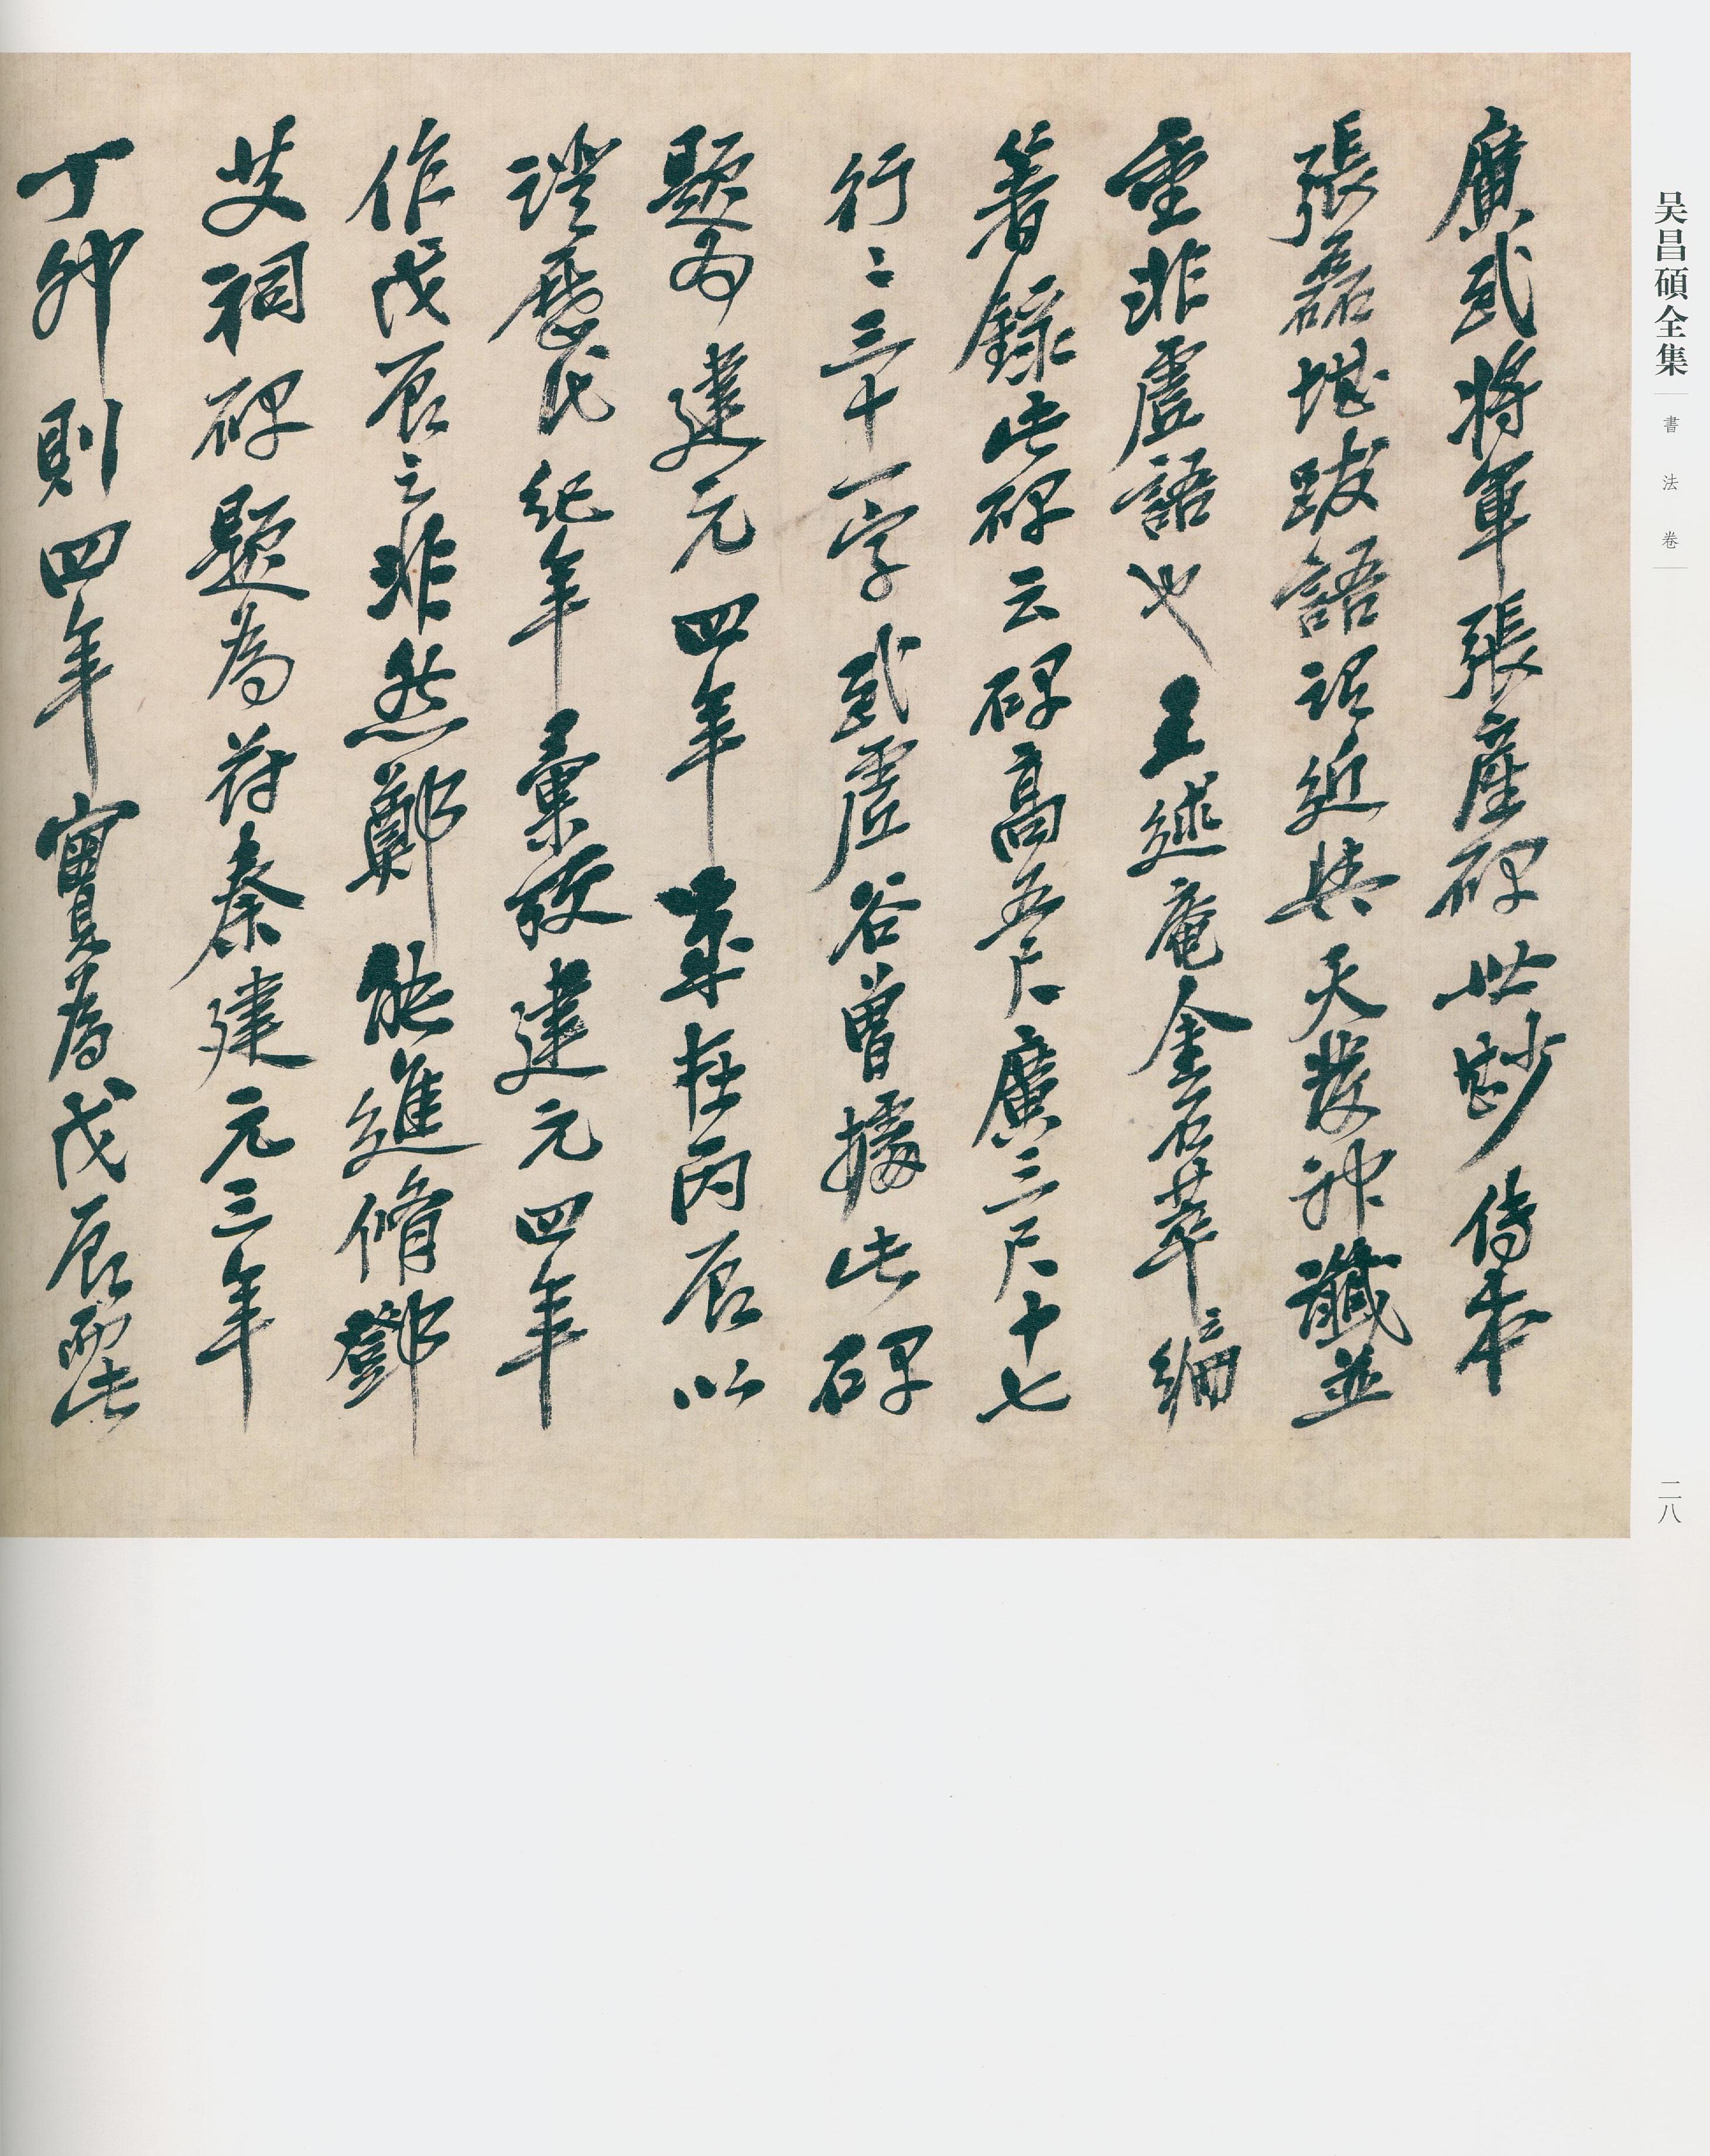 吴昌碩全集
書法卷
二八
廣武將軍張產碑世尟傳本
張磊堪跋語謂近與天發神讖並
重非虛語也王述庵金石萃編
著錄此碑云碑高五尺廣三尺十七
行二三十一字武虛谷曾據此碑
題為建元四年系在丙辰以
證歷代紀年彙攷建元四年
作戊辰之非然鄭能進脩鄧
艾祠碑題為苻秦建元三年
丁卯則四年實為戊辰